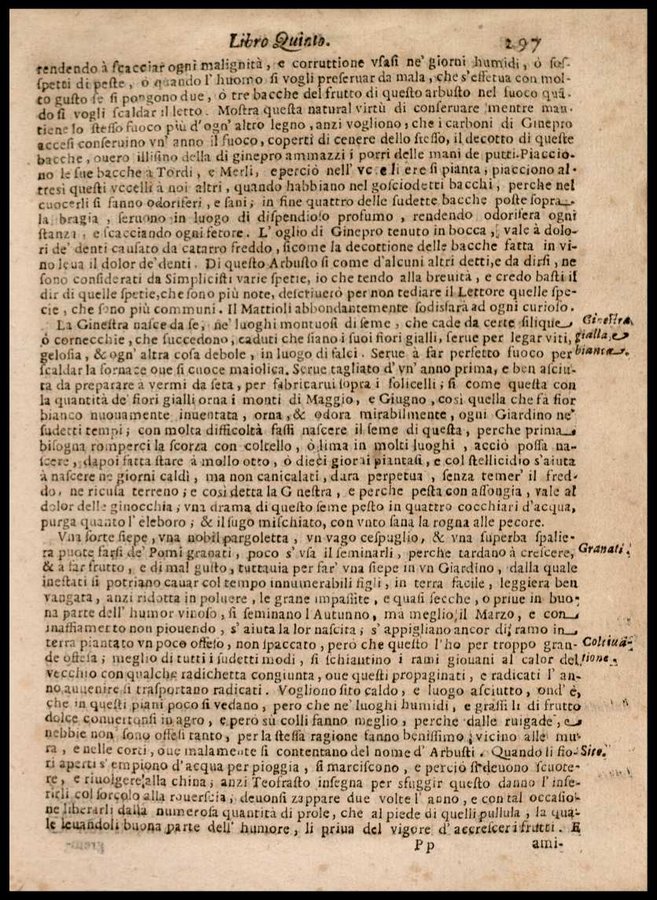 Libro Quinto. 297
rendendo à scacciar ogni malignità, e corruttione vsasi ne' giorni humidi, ò sos-
spetti di peste, ò quando l' huomo si vogli preseruar da mala, che s'effetua con mol-
to gusto se si pongono due, ò tre bacche del frutto di questo arbusto nel fuoco quā-
do si vogli scaldar il letto. Mostra questa natural virtù di conseruare mentre man-
tiene lo stesso fuoco più d'ogn' altro legno, anzi vogliono, che i carboni di Ginepro
accesi conseruino vn' anno il fuoco, coperti di cenere dello stesso, il decotto di queste
bacche, ouero illisino della di ginepro ammazzi i porri delle mani de putti. Piaccio-
no le sue bacche à Tordi, e Merli, e perciò nell' vc e li ere si pianta, piacciono al-
tresi questi vccelli à noi altri, quando habbiano nel gosciodetti bacchi, perche nel
cuocerli si fanno odoriferi, e sani; in fine quattro delle sudette bacche poste sopra
la bragia, seruono in luogo di dispendioso profumo, rendendo odorifera ogni
stanza, e scacciando ogni fetore. L' oglio di Ginepro tenuto in bocca, vale à dolo-
ri de' denti causato da catarro freddo, sicome la decottione delle bacche fatta in vi-
no leua il dolor de' denti. Di questo Arbusto si come d'alcuni altri detti, e da dirsi, ne
sono considerati da Simplicisti varie spetie, io che tendo alla breuità, e credo basti il
dir di quelle spetie, che sono più note, descriuerò per non tediare il Lettore quelle spe-
cie, che sono più communi. Il Mattioli abbondantemente sodisfarà ad ogni curioso.
La Ginestra nasce da se, ne' luoghi montuosi di seme, che cade da certe silique Ginestra
ò cornecchie, che succedono, caduti che siano i suoi fiori gialli, serue per legar viti, gialla, e
gelosia, & ogn' altra cosa debole, in luogo di falci. Serue à far perfetto fuoco per bianca.
scaldar la fornace oue si cuoce maiolica. Serue tagliato d'vn' anno prima, e ben asciut-
ta da preparare à vermi da seta, per fabricarui sopra i folicelli; si come questa con
la quantità de' fiori gialli orna i monti di Maggio, e Giugno, cosi quella che fà fior
bianco nuouamente inuentata, orna, & odora mirabilmente, ogni Giardino ne'
sudetti tempi; con molta difficoltà fassi nascere il seme di questa, perche prima
bisogna romperci la scorza con coltello, ò lima in molti luoghi, acciò possa na-
scere, dapoi fatta stare à mollo otto, ò dieci giorni piantasi, e col stellicidio s'aiuta
à nascere ne giorni caldi, ma non canicalati, dara perpetua, senza temer' il fred-
do, ne ricusa terreno; e cosi detta la G nestra, e perche pesta con assongia, vale al
dolor delle ginocchia; vna drama di questo seme pesto in quattro cocchiari d'acqua,
purga quanto l' eleboro; & il sugo mischiato, con vnto sana la rogna alle pecore.
Vna forte siepe, vna nobil pargoletta, vn vago cespuglio, & vna superba spalie-
ra puote farsi de' Pomi granati, poco s' vsa il seminarli, perche tardano à crescere, Granati.
& à far frutto, e di mal gusto, tuttauia per far' vna siepe in vn Giardino, dalla quale
inestati si potriano cauar col tempo innumerabili figli, in terra facile, leggiera ben
vangata, anzi ridotta in poluere, le grane impassite, e quasi secche, o priue in buo-
na parte dell' humor vinoso, si seminano l'Autunno, ma meglio il Marzo, e con
inaffiamento non piouendo, s' aiuta la lor nascita; s' appigliano ancor di ramo in
terra piantato vn poco offeso, non spaccato, però che questo l'ho per troppo gran- Coltiua-
de offesa; meglio di tutti i sudetti modi, si schiantino i rami giouani al calor del tione.
vecchio con qualche radichetta congiunta, oue questi propaginati, e radicati l' an-
no auuenire si trasportano radicati. Vogliono sito caldo, e luogo asciutto, ond' è,
che in questi piani poco si vedano, pero che ne' luoghi humidi, e grassi li di frutto
dolce conuertonsi in agro, e però su colli fanno meglio, perche dalle ruigade, e
nebbie non sono offesi tanto, per la stessa ragione fanno benissimo vicino alle mu-
ra, e nelle corti, oue malamente si contentano del nome d' Arbusti. Quando li fio- Sito.
ri aperti s' empiono d'acqua per pioggia, si marciscono, e perciò si deuono scuote-
re, e riuolgere alla china; anzi Teofrasto insegna per sfuggir questo danno l' inse-
rirli col sorcolo alla rouerscia; deuonsi zappare due volte l' anno, e con tal occasio-
ne liberarli dalla numerosa quantità di prole, che al piede di quelli pullula, la qua-
le leuandoli buona parte dell' humore, li priua del vigore d' accrescer i frutti. E
Pp ami-